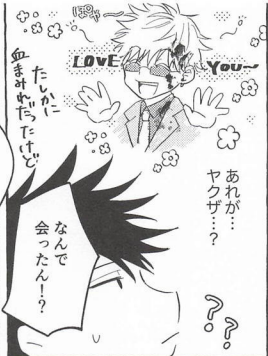 ぽや〜
LOVE YOU〜
たしかに
血まみれだったけど
あれが…
ヤクザ…?
なんで
会ったん!?
??